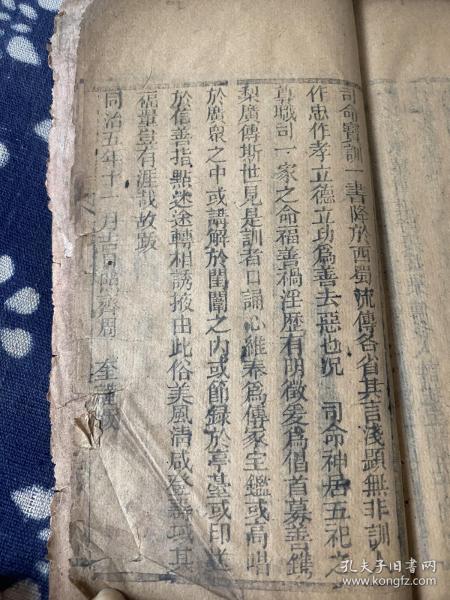 司命寶訓一書降於西蜀流傳各省其言淺顯無非訓
作忠作孝立德立功為善去惡也況 司命神居五祀之
尊職司一家之命福善禍淫歷有明徵爰為倡首募善鋟
梨廣傳斯世見是訓者口誦心維奉為傳家宝鑑或高唱
於廣衆之中或講解於閨闈之內或節録於亭基或印送
於信善指點迷途轉相誘掖由此俗美風清咸登善域其
福量豈有涯哉故跋
同治五年十一月吉日 齊周 奎謹跋
孔夫子旧书网
www.kongfz.com